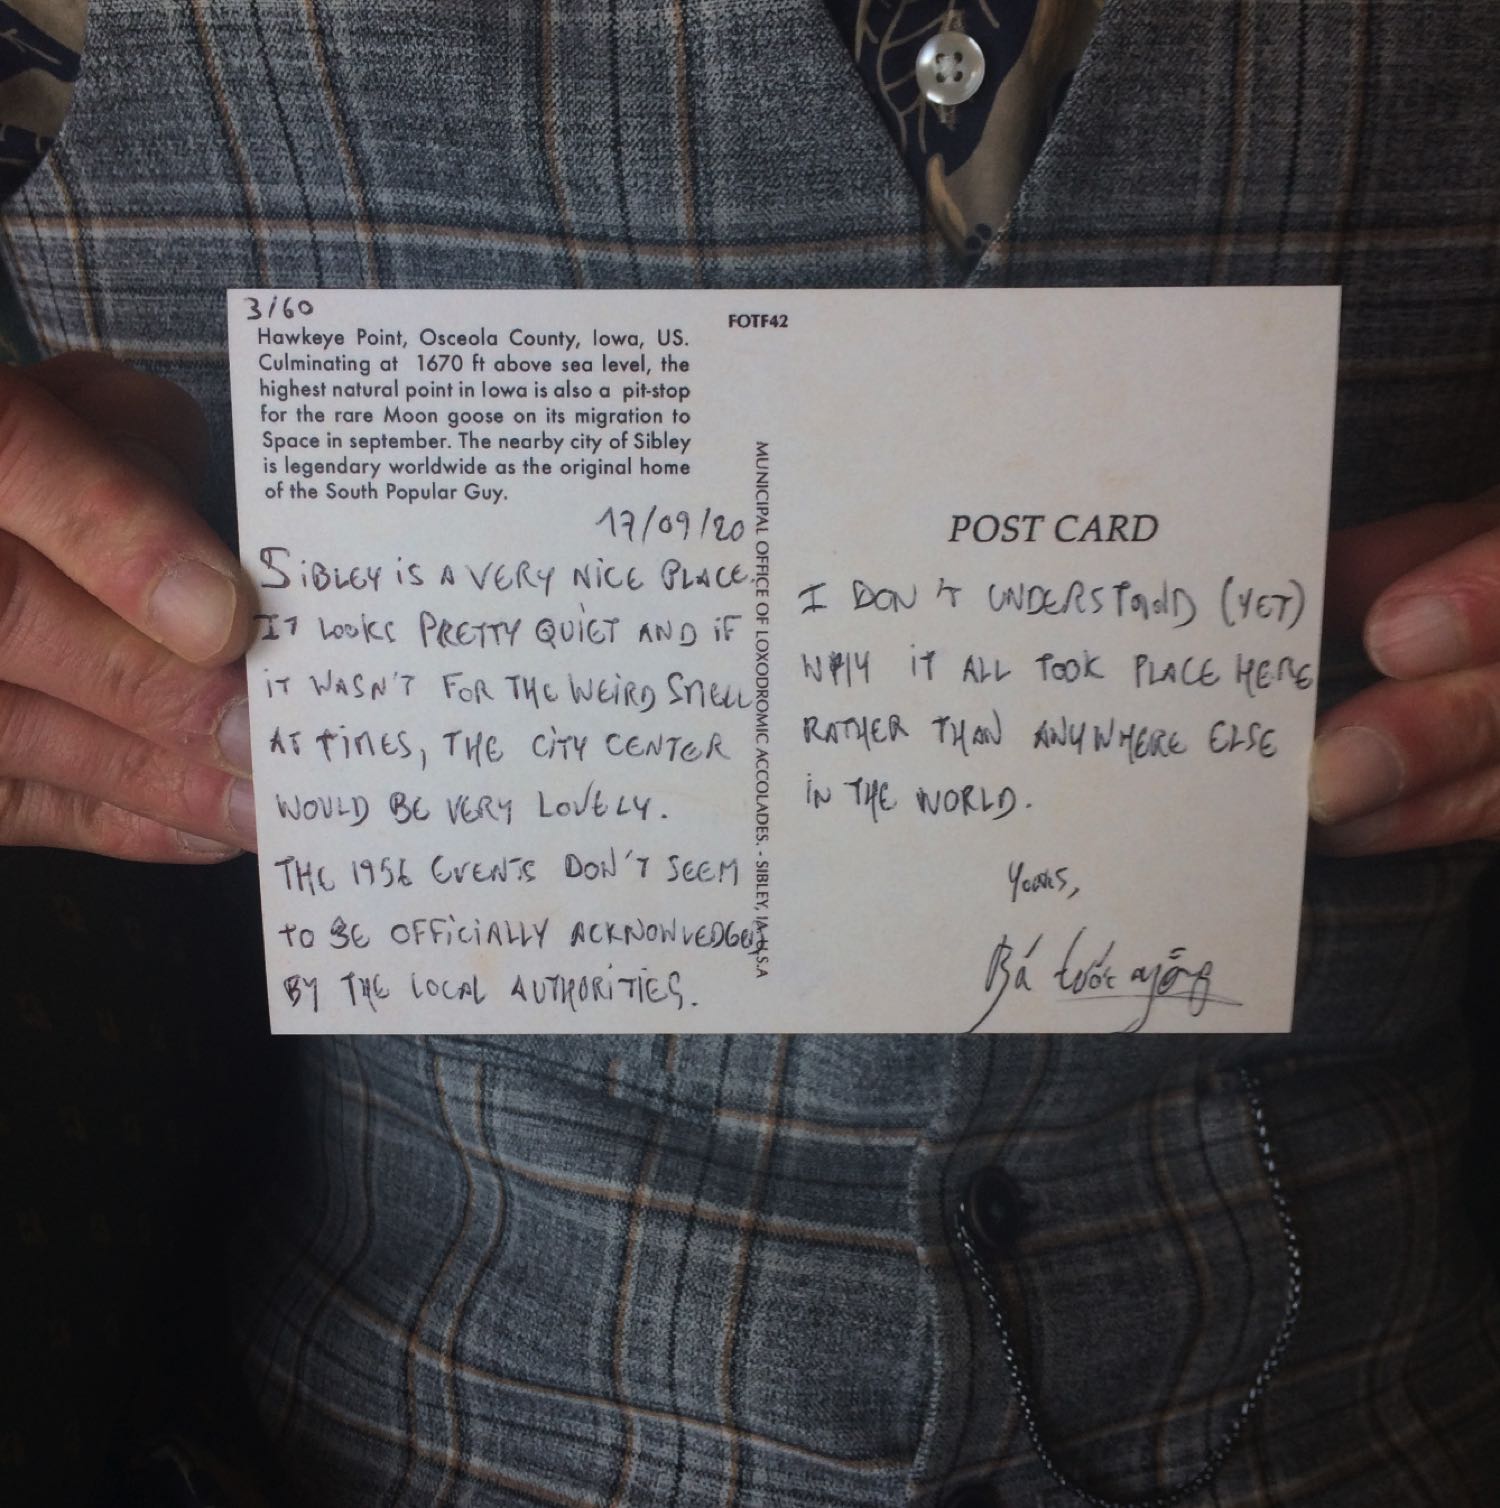 3/60
Hawkeye Point, Osceola County, Iowa, US.
Culminating at 1670 ft above sea level, the
highest natural point in Iowa is also a pit-stop
for the rare Moon goose on its migration to
Space in september. The nearby city of Sibley
is legendary worldwide as the original home
of the South Popular Guy.
17/09/20
SIBLEY IS A VERY NICE PLACE.
IT LOOKS PRETTY QUIET AND IF
IT WASN'T FOR THE WEIRD SMELL
AT TIMES, THE CITY CENTER
WOULD BE VERY LOVELY.
THE 1956 EVENTS DON'T SEEM
TO BE OFFICIALLY ACKNOWLEDGED
BY THE LOCAL AUTHORITIES.
FOTF42
MUNICIPAL OFFICE OF LOXODROMIC ACCOLADES. - SIBLEY, IA U.S.A
POST CARD
I DON'T UNDERSTAND (YET)
WHY IT ALL TOOK PLACE HERE
RATHER THAN ANYWHERE ELSE
IN THE WORLD.
Yours,
Bá tước ngỗng